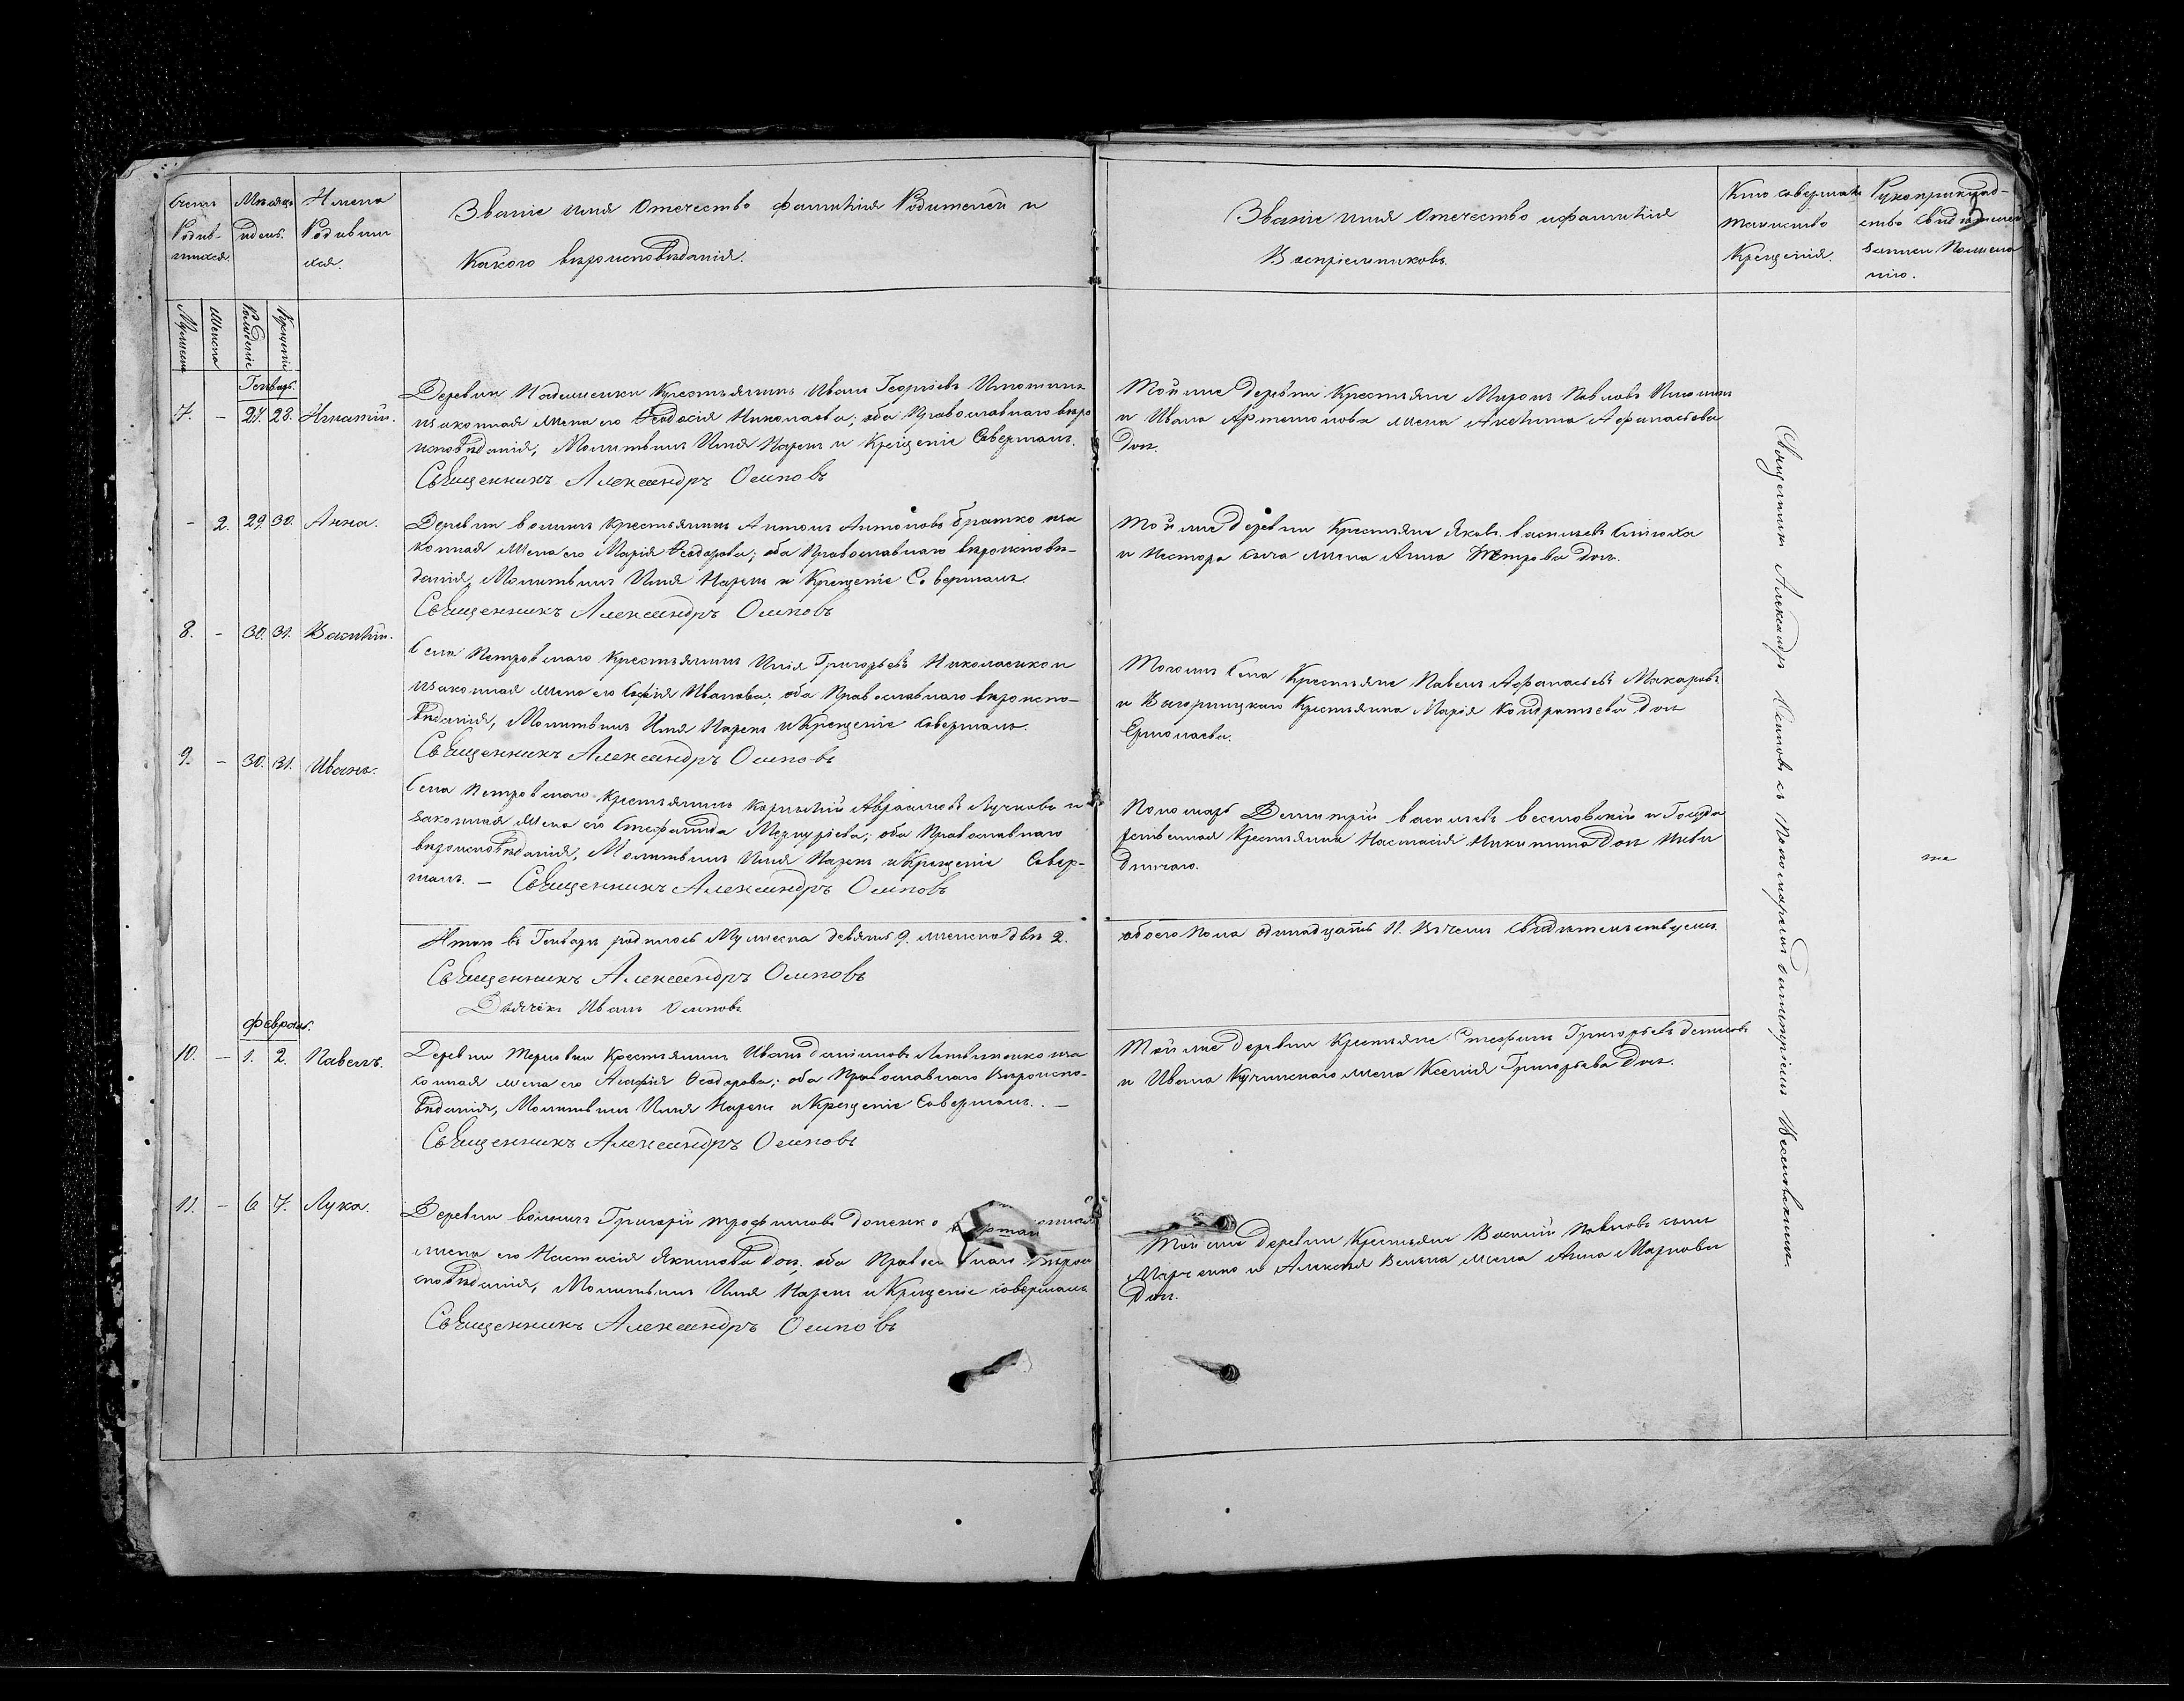 Счетъ Родив-
шихся.
Мѣсяцъ
и день.
Имена
Родивши
хся.
Званіе имя Отечество фамилія Родителей и
Какого вѣроисповѣданія.
Званіе имя Отечество и фамилія
Воспріемниковъ.
Кто совершалъ
таинство
Крещенія.
Рукоприклад-
ство свидѣтелей
записи По желა
нію.
Мужеска
Женска
Рожденіе
Крещеніе
Генварь.
7. – 27. 28. Игнатій.
Деревни Крестьянинъ Иванъ Георгіевъ
и законная жена его Ѳеодосія Николаева; оба Православнаго вѣро
исповѣданія, Молитвилъ Имя Нарекъ и Крещеніе Совершалъ.
Священникъ Александръ Осиповъ
Той же деревни Крестьяне Миронъ Павловъ
и Ивана Артемонова жена Акилина Афанасьева
Дочь.
– 2. 29. 30. Анна.
Деревни Крестьянинъ Антонъ Антоновъ Братко и за
конная Жена его Марія Ѳеодорова; оба Православнаго вѣроисповѣ-
данія, Молитвилъ Имя Нарекъ и Крещеніе Совершалъ.
Священникъ Александръ Осиповъ
Той же Деревни Крестьяне Яковъ Васильевъ
и Нестора сыча жена Анна Петрова дочь.
8. – 30. 31. Василій.
Села Петровскаго Крестьянинъ Илія Григорьевъ Николаенко и
и законная жена его Софія Иванова; оба Православнаго вѣроиспо-
вѣданія, Молитвилъ Имя Нарекъ и Крещеніе совершалъ.
Священникъ Александръ Осиповъ
Тогожъ Села Крестьяне Павелъ Афанасьевъ Макаровъ
и Крестьянина Марія Кондратьева дочь
Ермолаева.
9. – 30. 31. Иванъ.
Села Петровскаго Крестьянинъ Корнилій Лучковъ и
законная жена его Стефанида Меркуріева; оба Православнаго
вѣроисповѣданія, Молитвилъ Имя Нарекъ и Крещеніе Совер-
шалъ. – Священникъ Александръ Осиповъ
Пономарь Димитрій Васильевъ Веселовскій и Госуда
рственная Крестьянка Настасія Никитина Дочь
Итого въ Генварѣ родилось Мужеска девять 9. женска двѣ 2.
обоего Пола одинадцать 11. Въ чемъ Свидѣтельствуемъ.
Священникъ Александръ Осиповъ
Дьячекъ Иванъ Осиповъ
Февраль.
10. – 1. 2. Павелъ.
Деревни Терновки Крестьянинъ Иванъ Литвиненко и за
конная жена его Агафія Ѳеодорова; оба Православнаго Вѣроиспо-
вѣданія, Молитвилъ Имя Нарекъ и Крещеніе Совершалъ. –
Священникъ Александръ Осиповъ
Той же Деревни Крестьяне Стефанъ Григорьевъ Денисовъ
и Ивана Кучинскаго жена Ксенія Григорьева Дочь.
11. – 6 7. Лука.
Деревни Григорій Трофимовъ Доненко
жена его Настасія Якимова Дочь. оба вѣрои
сповѣданія, Молитвилъ Имя Нарекъ и Крещеніе совершалъ
Священникъ Александръ Осиповъ
Той же деревни Крестьяне Василій Павловъ сынъ
Марченко и Алексѣя жена Анна Маркова
Дочь.
Священникъ Александръ Осиповъ съ Пономаремъ Димитріемъ Веселовскимъ